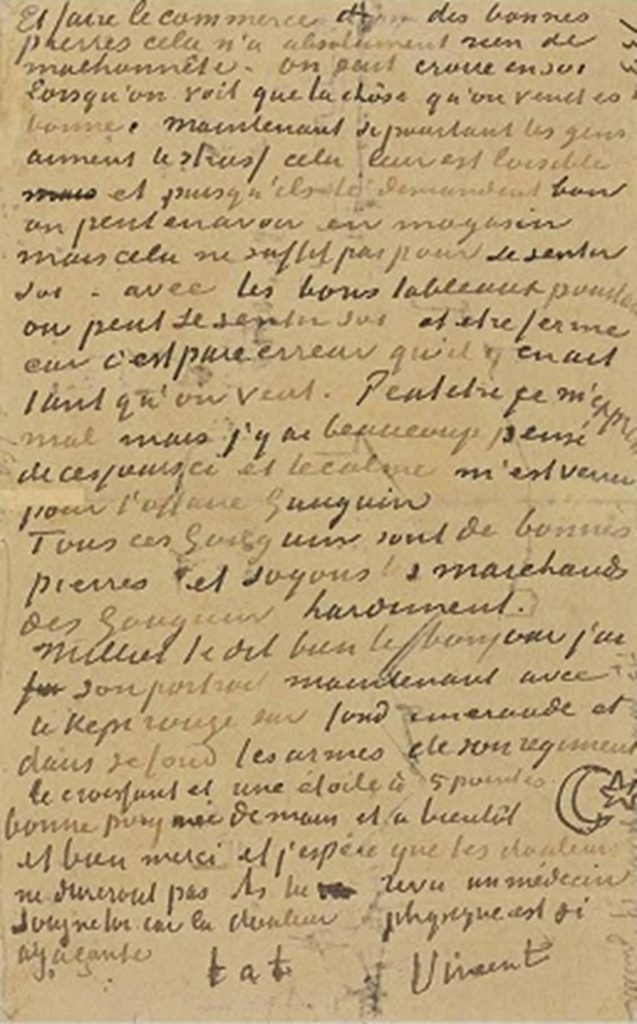 Et faire le commerce des bonnes
pierres cela n'a absolument rien de
malhonnête. on peut croire en soi
lorsqu'on voit que la chose qu'on vend est
bonne. maintenant si pourtant les gens
aiment le strass cela leur est loisible
mais et puisqu'ils le demandent bon
on peut en avoir en magasin
mais cela ne suffit pas pour se sentir
soi - avec les bons tableaux pourtant
on peut se sentir soi et etre ferme
car c'est pure erreur qu'il y en ait
tant qu'on veut. Peutetre je m'exprime
mal mais j'y ai beaucoup pensé
de ces jours ci et le calme m'est venu
pour l'affaire Gauguin
Tous ces Gauguin sont de bonnes
pierres et soyons les marchands
des Gauguin hardiment.
Milliet te dit bien le bonjour j'ai
son portrait maintenant avec
le Kepi rouge sur fond emeraude et
dans ce fond les armes de son regiment
le croissant et une étoile à 5 pointes.
bonne poignée de main et a bientôt
et bien merci et j'espère que les douleurs
ne dureront pas As tu revu un médecin
soigne toi car la douleur physique est si
agaçante
t. a. t. Vincent